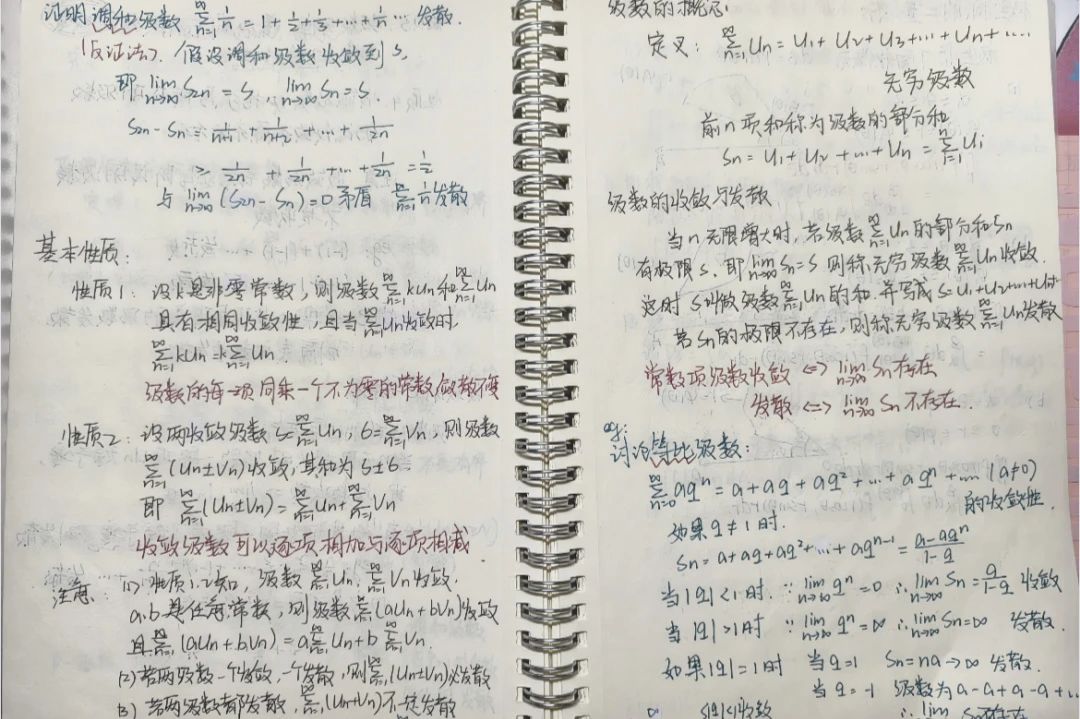 证明调和级数 ∑_{n=1}^{∞} 1/n = 1 + 1/2 + 1/3 + … + 1/n … 发散.
(反证法). 假设调和级数收敛到 S,
即 lim_{n→∞} S2n = S , lim_{n→∞} Sn = S.
S2n - Sn = 1/(n+1) + 1/(n+2) + … + 1/2n
> 1/2n + 1/2n + … + 1/2n = 1/2
与 lim_{n→∞} (S2n - Sn) = 0 矛盾 ∑_{n=1}^{∞} 1/n 发散
基本性质:
性质1: 设k是非零常数, 则级数 ∑_{n=1}^{∞} kUn 和 ∑_{n=1}^{∞} Un
具有相同收敛性, 且当 ∑_{n=1}^{∞} Un 收敛时.
∑_{n=1}^{∞} kUn = k∑_{n=1}^{∞} Un.
级数的每一项同乘一个不为零的常数, 敛散不变
性质2: 设两收敛级数 S=∑_{n=1}^{∞} Un, 6=∑_{n=1}^{∞} Vn, 则级数
∑_{n=1}^{∞} (Un±Vn) 收敛, 其和为 S±6.
即 ∑_{n=1}^{∞} (Un±Vn) = ∑_{n=1}^{∞} Un ± ∑_{n=1}^{∞} Vn
收敛级数可以逐项相加与逐项相减
注意: (1) 性质1.2知, 级数 ∑_{n=1}^{∞} Un, ∑_{n=1}^{∞} Vn 收敛.
a,b是任意常数, 则级数 ∑_{n=1}^{∞} (aUn+bVn) 收敛
且 ∑_{n=1}^{∞} (aUn+bVn) = a∑_{n=1}^{∞} Un + b∑_{n=1}^{∞} Vn.
(2) 若两级数一个收敛, 一个发散, 则 ∑_{n=1}^{∞} (Un±Vn) 必发散
(3) 若两级数都发散, ∑_{n=1}^{∞} (Un±Vn) 不一定发散
级数的概念:
定义: ∑_{n=1}^{∞} Un = U1 + U2 + U3 + … + Un + ….
无穷级数
前n项和称为级数的部分和
Sn = U1 + U2 + … + Un = ∑_{i=1}^{n} Ui
级数的收敛与发散
当n无限增大时, 若级数 ∑_{n=1}^{∞} Un 的部分和Sn
有极限S, 即 lim_{n→∞} Sn = S 则称无穷级数 ∑_{n=1}^{∞} Un 收敛.
这时S叫做级数 ∑_{n=1}^{∞} Un 的和. 并写成 S=U1+U2+…+Un+…
若Sn的极限不存在, 则称无穷级数 ∑_{n=1}^{∞} Un 发散
常数项级数收敛 <=> lim_{n→∞} Sn存在
发散 <=> lim_{n→∞} Sn不存在.
eg:
讨论等比级数:
∑_{n=0}^{∞} aq^n = a + aq + aq² + … + aq^n + … (a≠0)
的收敛性
如果q≠1时.
Sn = a + aq + aq² + … + aq^{n-1} = (a-aq^n)/(1-q)
当|q|<1时. ∵ lim_{n→∞} q^n = 0 ∴ lim_{n→∞} Sn = a/(1-q) 收敛
当|q|>1时 ∵ lim_{n→∞} q^n = ∞ ∴ lim_{n→∞} Sn = ∞ 发散.
如果|q|=1时 当q=1 Sn=na→∞ 发散.
当q=-1 级数为 a-a+a-a+…
|q|<1收敛 ∴ lim Sn不存在